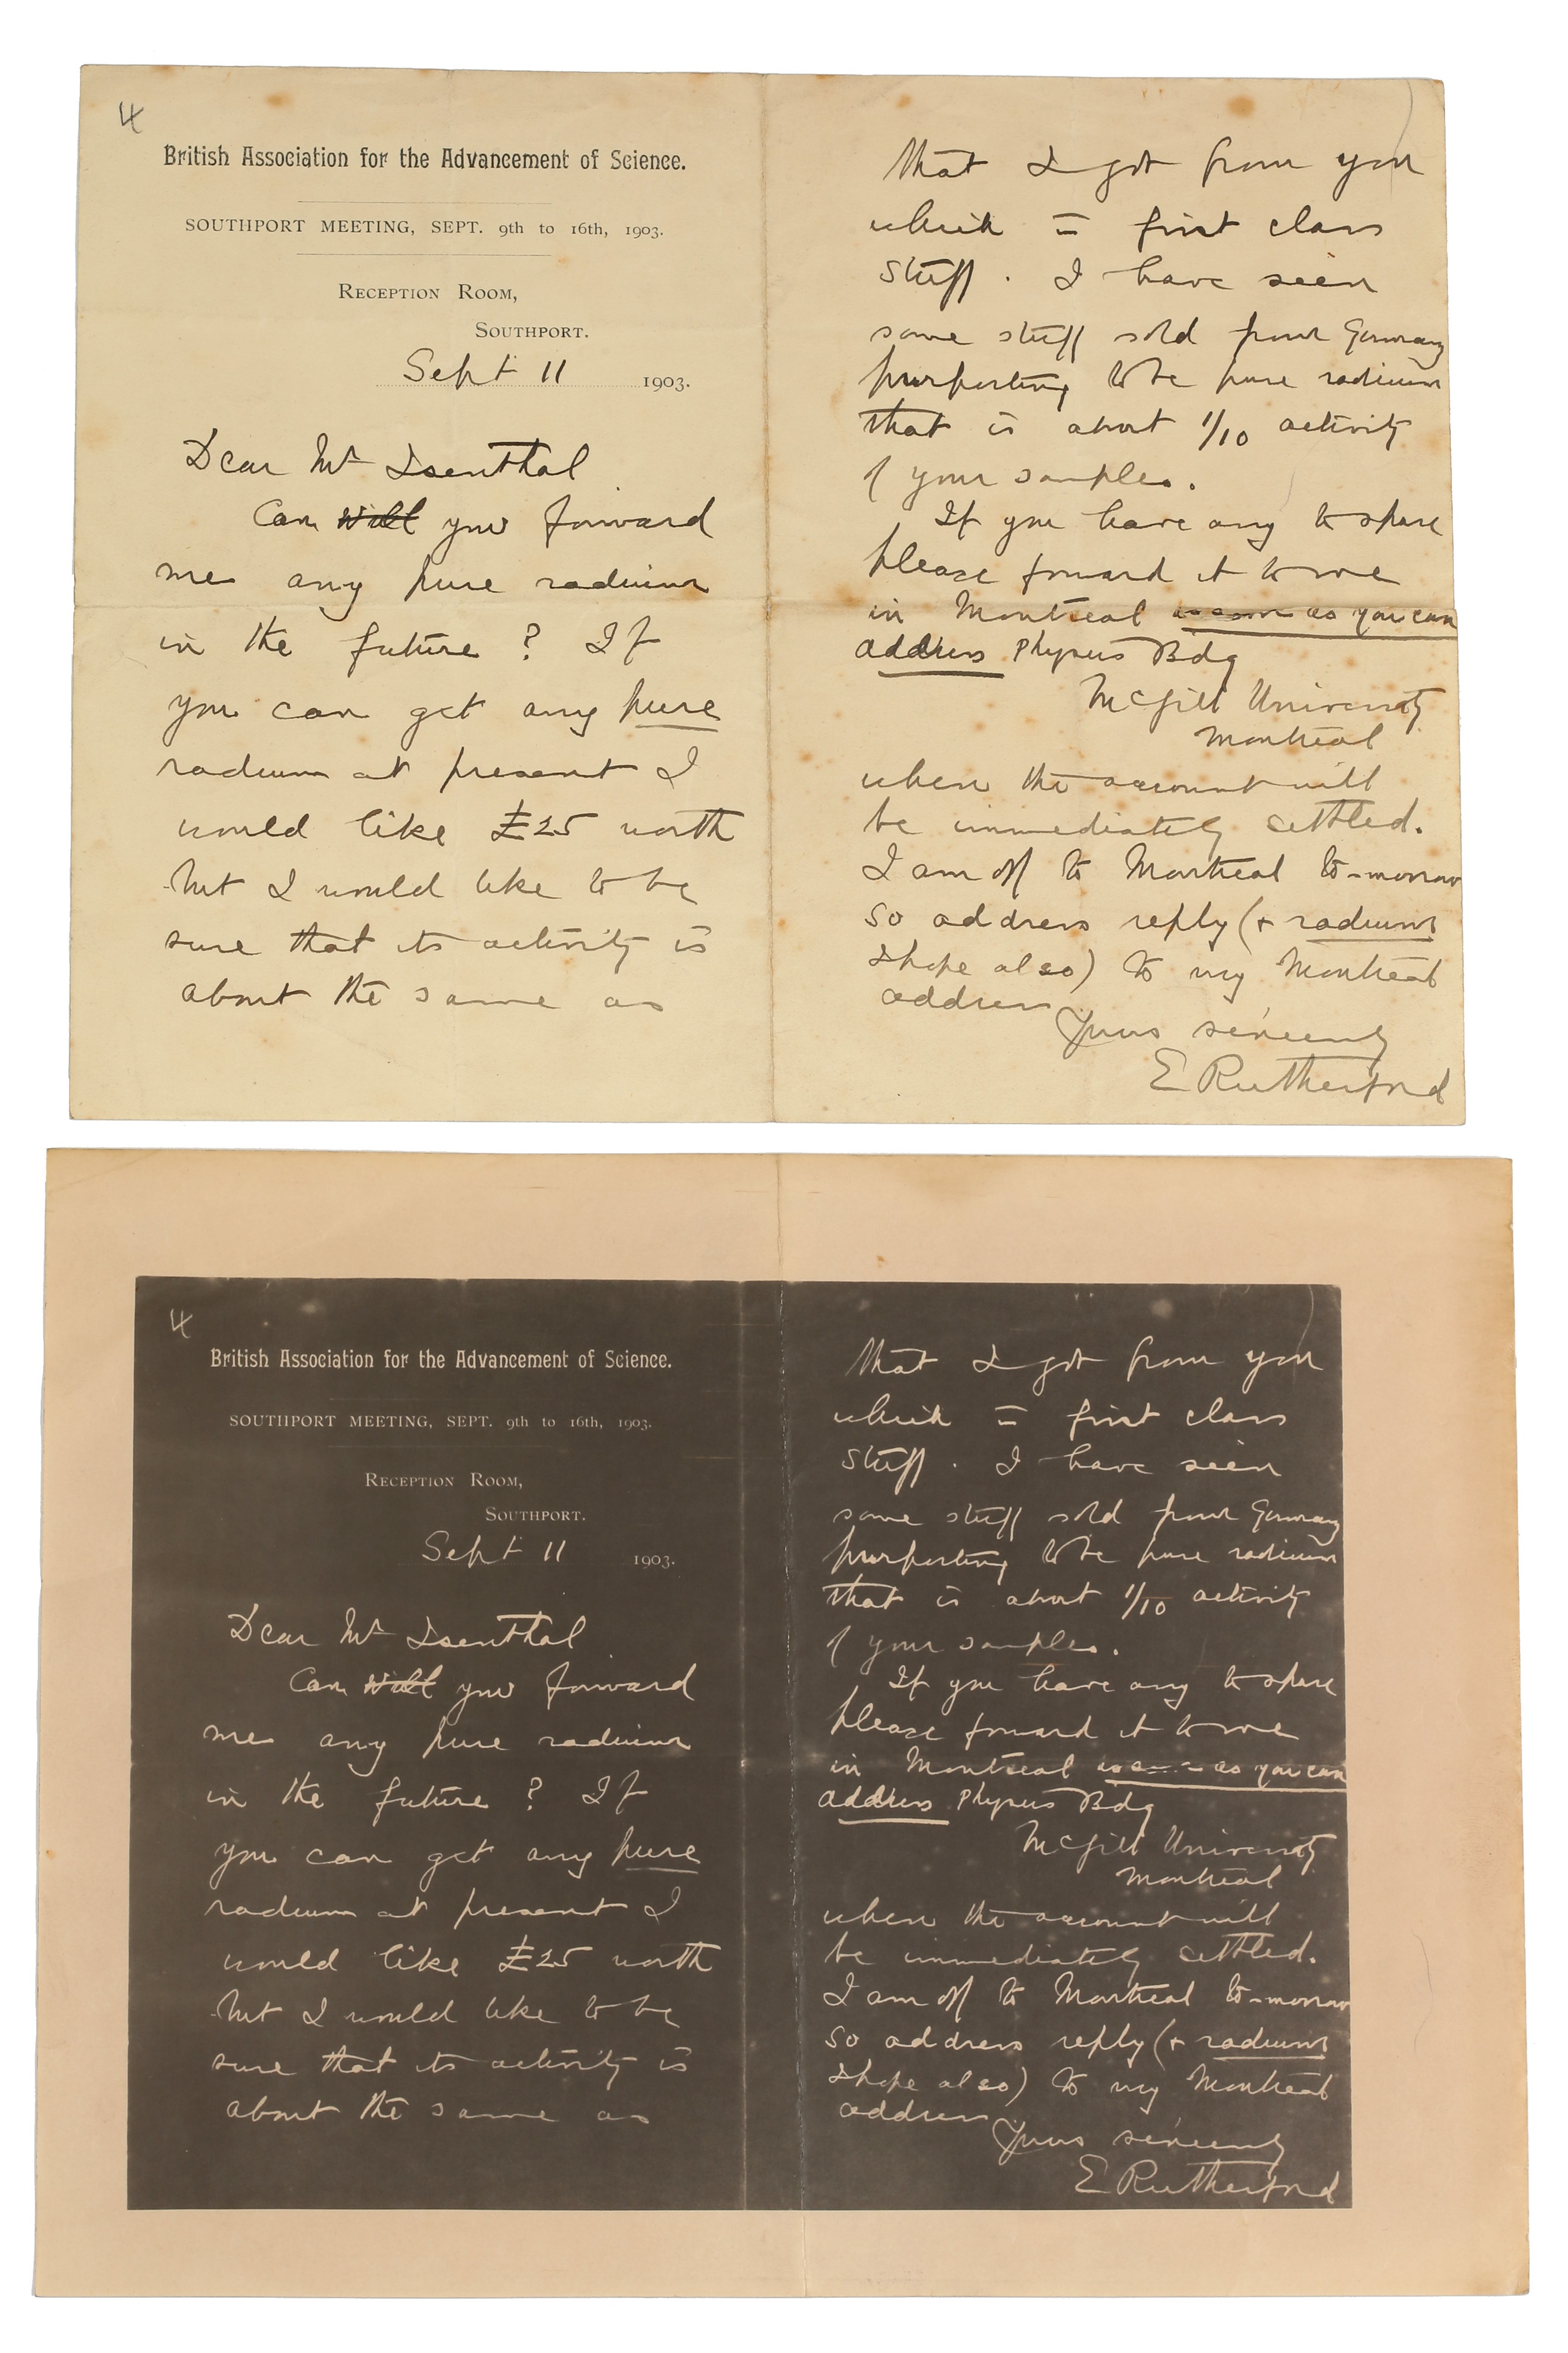 4
British Association for the Advancement of Science.
SOUTHPORT MEETING, SEPT. 9th to 16th, 1903.
RECEPTION ROOM,
SOUTHPORT.
Sept 11 1903.
Dear Mr Isenthal
Can will you forward
me any pure radium
in the future? If
you can get any pure
radium at present I
would like £25 worth
but I would like to be
sure that its activity is
about the same as
that I got from you
which is first class
stuff. I have seen
some stuff sold from Germany
purporting to be pure radium
that is about 1/10 activity
of your samples.
If you have any to spare
please forward it to me
in Montreal as soon as you can
address Physics Bdg
McGill University
Montreal
when the account will
be immediately settled.
I am off to Montreal to-morrow
so address reply (+ radium
I hope also) to my Montreal
address
Yours sincerely
E Rutherford
4
British Association for the Advancement of Science.
SOUTHPORT MEETING, SEPT. 9th to 16th, 1903.
RECEPTION ROOM,
SOUTHPORT.
Sept 11 1903.
Dear Mr Isenthal
Can will you forward
me any pure radium
in the future? If
you can get any pure
radium at present I
would like £25 worth
but I would like to be
sure that its activity is
about the same as
that I got from you
which is first class
stuff. I have seen
some stuff sold from Germany
purporting to be pure radium
that is about 1/10 activity
of your samples.
If you have any to spare
please forward it to me
in Montreal as soon as you can
address Physics Bdg
McGill University
Montreal
when the account will
be immediately settled.
I am off to Montreal to-morrow
so address reply (+ radium
I hope also) to my Montreal
address
Yours sincerely
E Rutherford